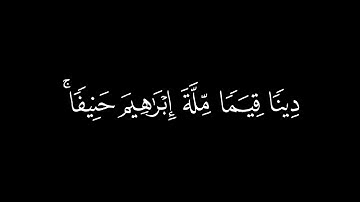 دِينٗا قِيَمٗا مِّلَّةَ إِبۡرَٰهِيمَ حَنِيفٗاۚ